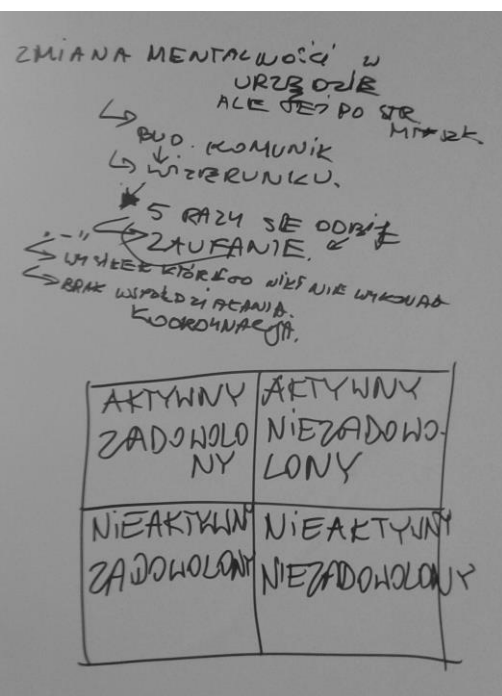 ZMIANA MENTALNOŚCI W
URZĘDZIE
ALE TEŻ PO STR
MIESZK.
BUD. KOMUNIK
WIZERUNKU.
5 RAZY SIĘ ODBIJĘ
ZAUFANIE.
WYSIŁEK KTÓREGO NIKT NIE WYKONAŁ
BRAK WSPÓŁDZIAŁANIA.
KOORDYNACJA.
AKTYWNY
ZADOWOLO
NY
AKTYWNY
NIEZADOWO-
LONY
NIEAKTYWNY
ZADOWOLONY
NIEAKTYWNY
NIEZADOWOLONY